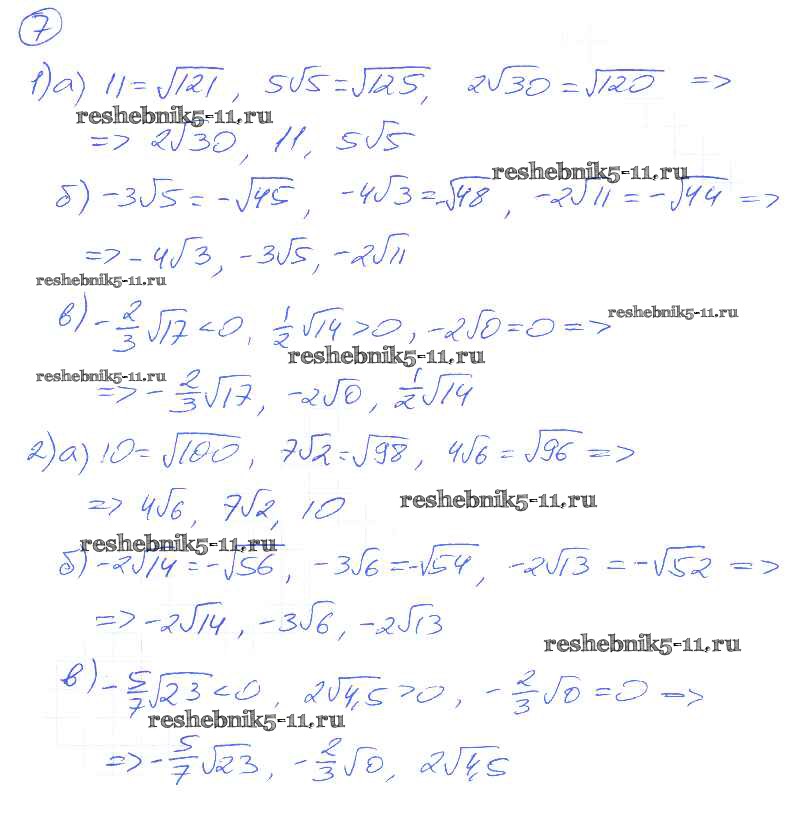 7
1) а) 11 = √121, 5√5 = √125, 2√30 = √120 =>
reshebnik5-11.ru
=> 2√30, 11, 5√5
reshebnik5-11.ru
б) -3√5 = -√45, -4√3 = -√48, -2√11 = -√44 =>
=> -4√3, -3√5, -2√11
reshebnik5-11.ru
в) -2/3√17 < 0, 1/2√14 > 0, -2√0 = 0 =>
reshebnik5-11.ru
reshebnik5-11.ru
reshebnik5-11.ru
=> -2/3√17, -2√0, 1/2√14
2) а) 10 = √100, 7√2 = √98, 4√6 = √96 =>
=> 4√6, 7√2, 10
reshebnik5-11.ru
reshebnik5-11.ru
б) -2√14 = -√56, -3√6 = -√54, -2√13 = -√52 =>
=> -2√14, -3√6, -2√13
reshebnik5-11.ru
в) -5/7√23 < 0, 2√4,5 > 0, -2/3√0 = 0 =>
reshebnik5-11.ru
=> -5/7√23, -2/3√0, 2√4,5